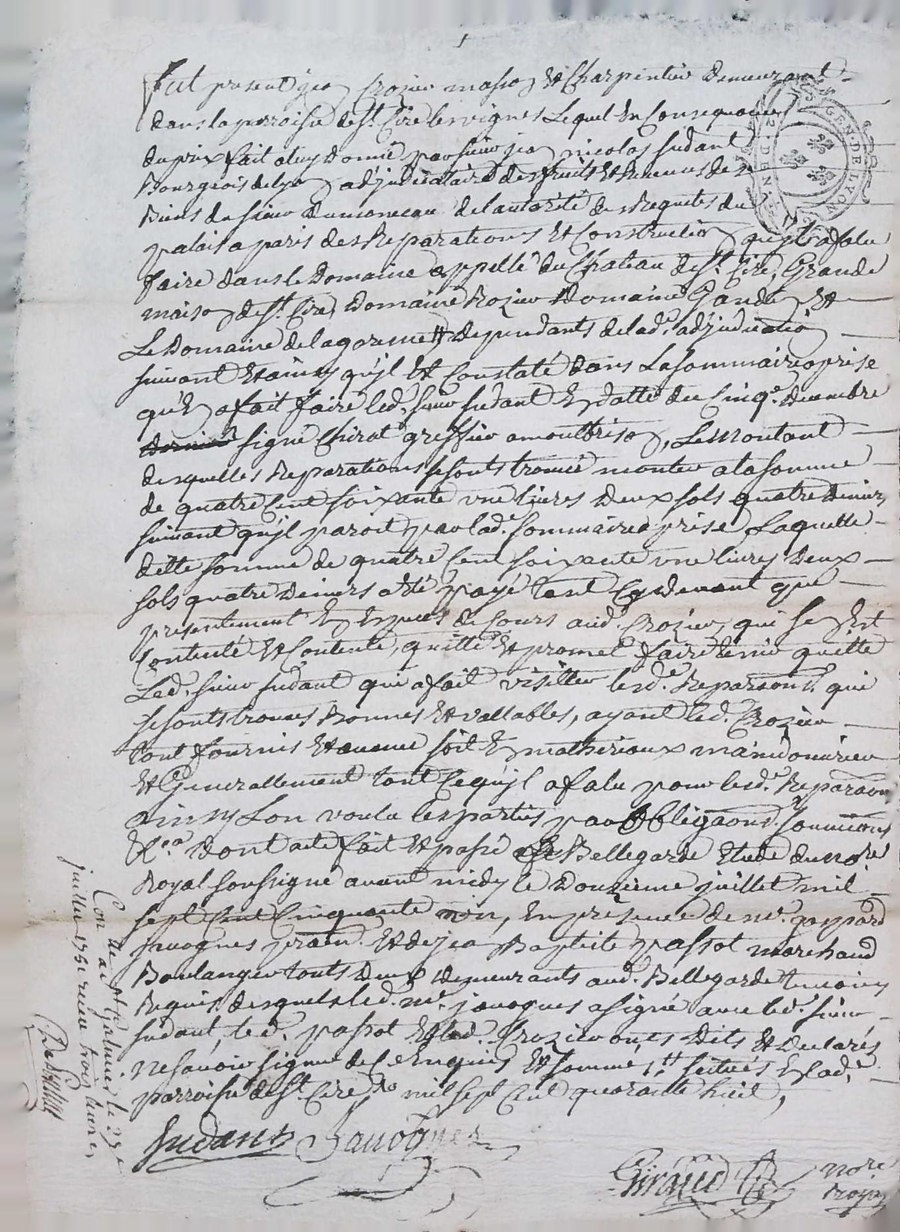 fut present jean Crozier masson Et Charpentier demeurant
dans la parroisse de St. Cire les vignes Lequel En Consequence
du prix fait a luy Donné par sieur jean nicolas sudant
Bourgeois de lyon adjudicataire des fruits Et Revenus des
Biens du sieur Dumonceau de l'autorité des Requetes du
palais a paris des Reparations Et Construction qu'il a falu
faire dans le Domaine appellé du Chateau de St. Cire, Grande
maison de St. Cire, Domaine Rozier Domaine Et
Le Domaine de la garenne dependants de lad. adjudication
suivant Et ainsy qu'jl Est Constaté dans La sommaire aprise
qu'En a fait faire led. sieur sudant En datte du Cinqe. Decembre
signé Chirat greffier a montbrison, Le montant
desquelles Reparations se sont trouvé monter a la somme
de quatre Cent soixante une livres Deux sols quatre Deniers
suivant qu'jl paroit par lad. sommaire aprise Laquelle
ditte somme de quatre Cent soixante une livres Deux
sols quatre Deniers a été payé tant Cy devant que
presentement En Especes de Cours aud. Crozier, qui s'en Est
Contenté Et Contente, quitte Et promet faire tenir quitte
Led. sieur sudant qui a fait visitter lesd. Reparaons. qui
se sont trouvés Bonnes Et vallables, ayant led. Crozier
tout fournis Et avancé soit En matheriaux maindoeuvre
Et Generallement tout Ce qu'jl a falu pour lesd. Reparaons
ainsy L'on voulu les parties par obligaons. soumissions
Ra. Dont acte fait Et passé a Bellegarde Etude du nore.
Royal soussigné avant midy le Douzieme juillet mil
sept Cent Cinquante un, En presence de mr. gaspard
javogues prain. Et de jean Baptiste passot marchand
Boulanger touts deux demeurants aud. Bellegarde temoins
Requis desquels led. mr. javogues a signé avec led. sieur
sudant, led. passot Et led. Crozier ont Dits Et declarés
ne savoir signer de Ce Enquis Et sommés, situés En lad.
parroisse de St. Cire, mil sept Cent quarante huit,
Sudant Javogues
Giraud nore Royal
GEN DE LYON
Con. a St. Galmier le 23e
juillet 1751 reçu trois livres